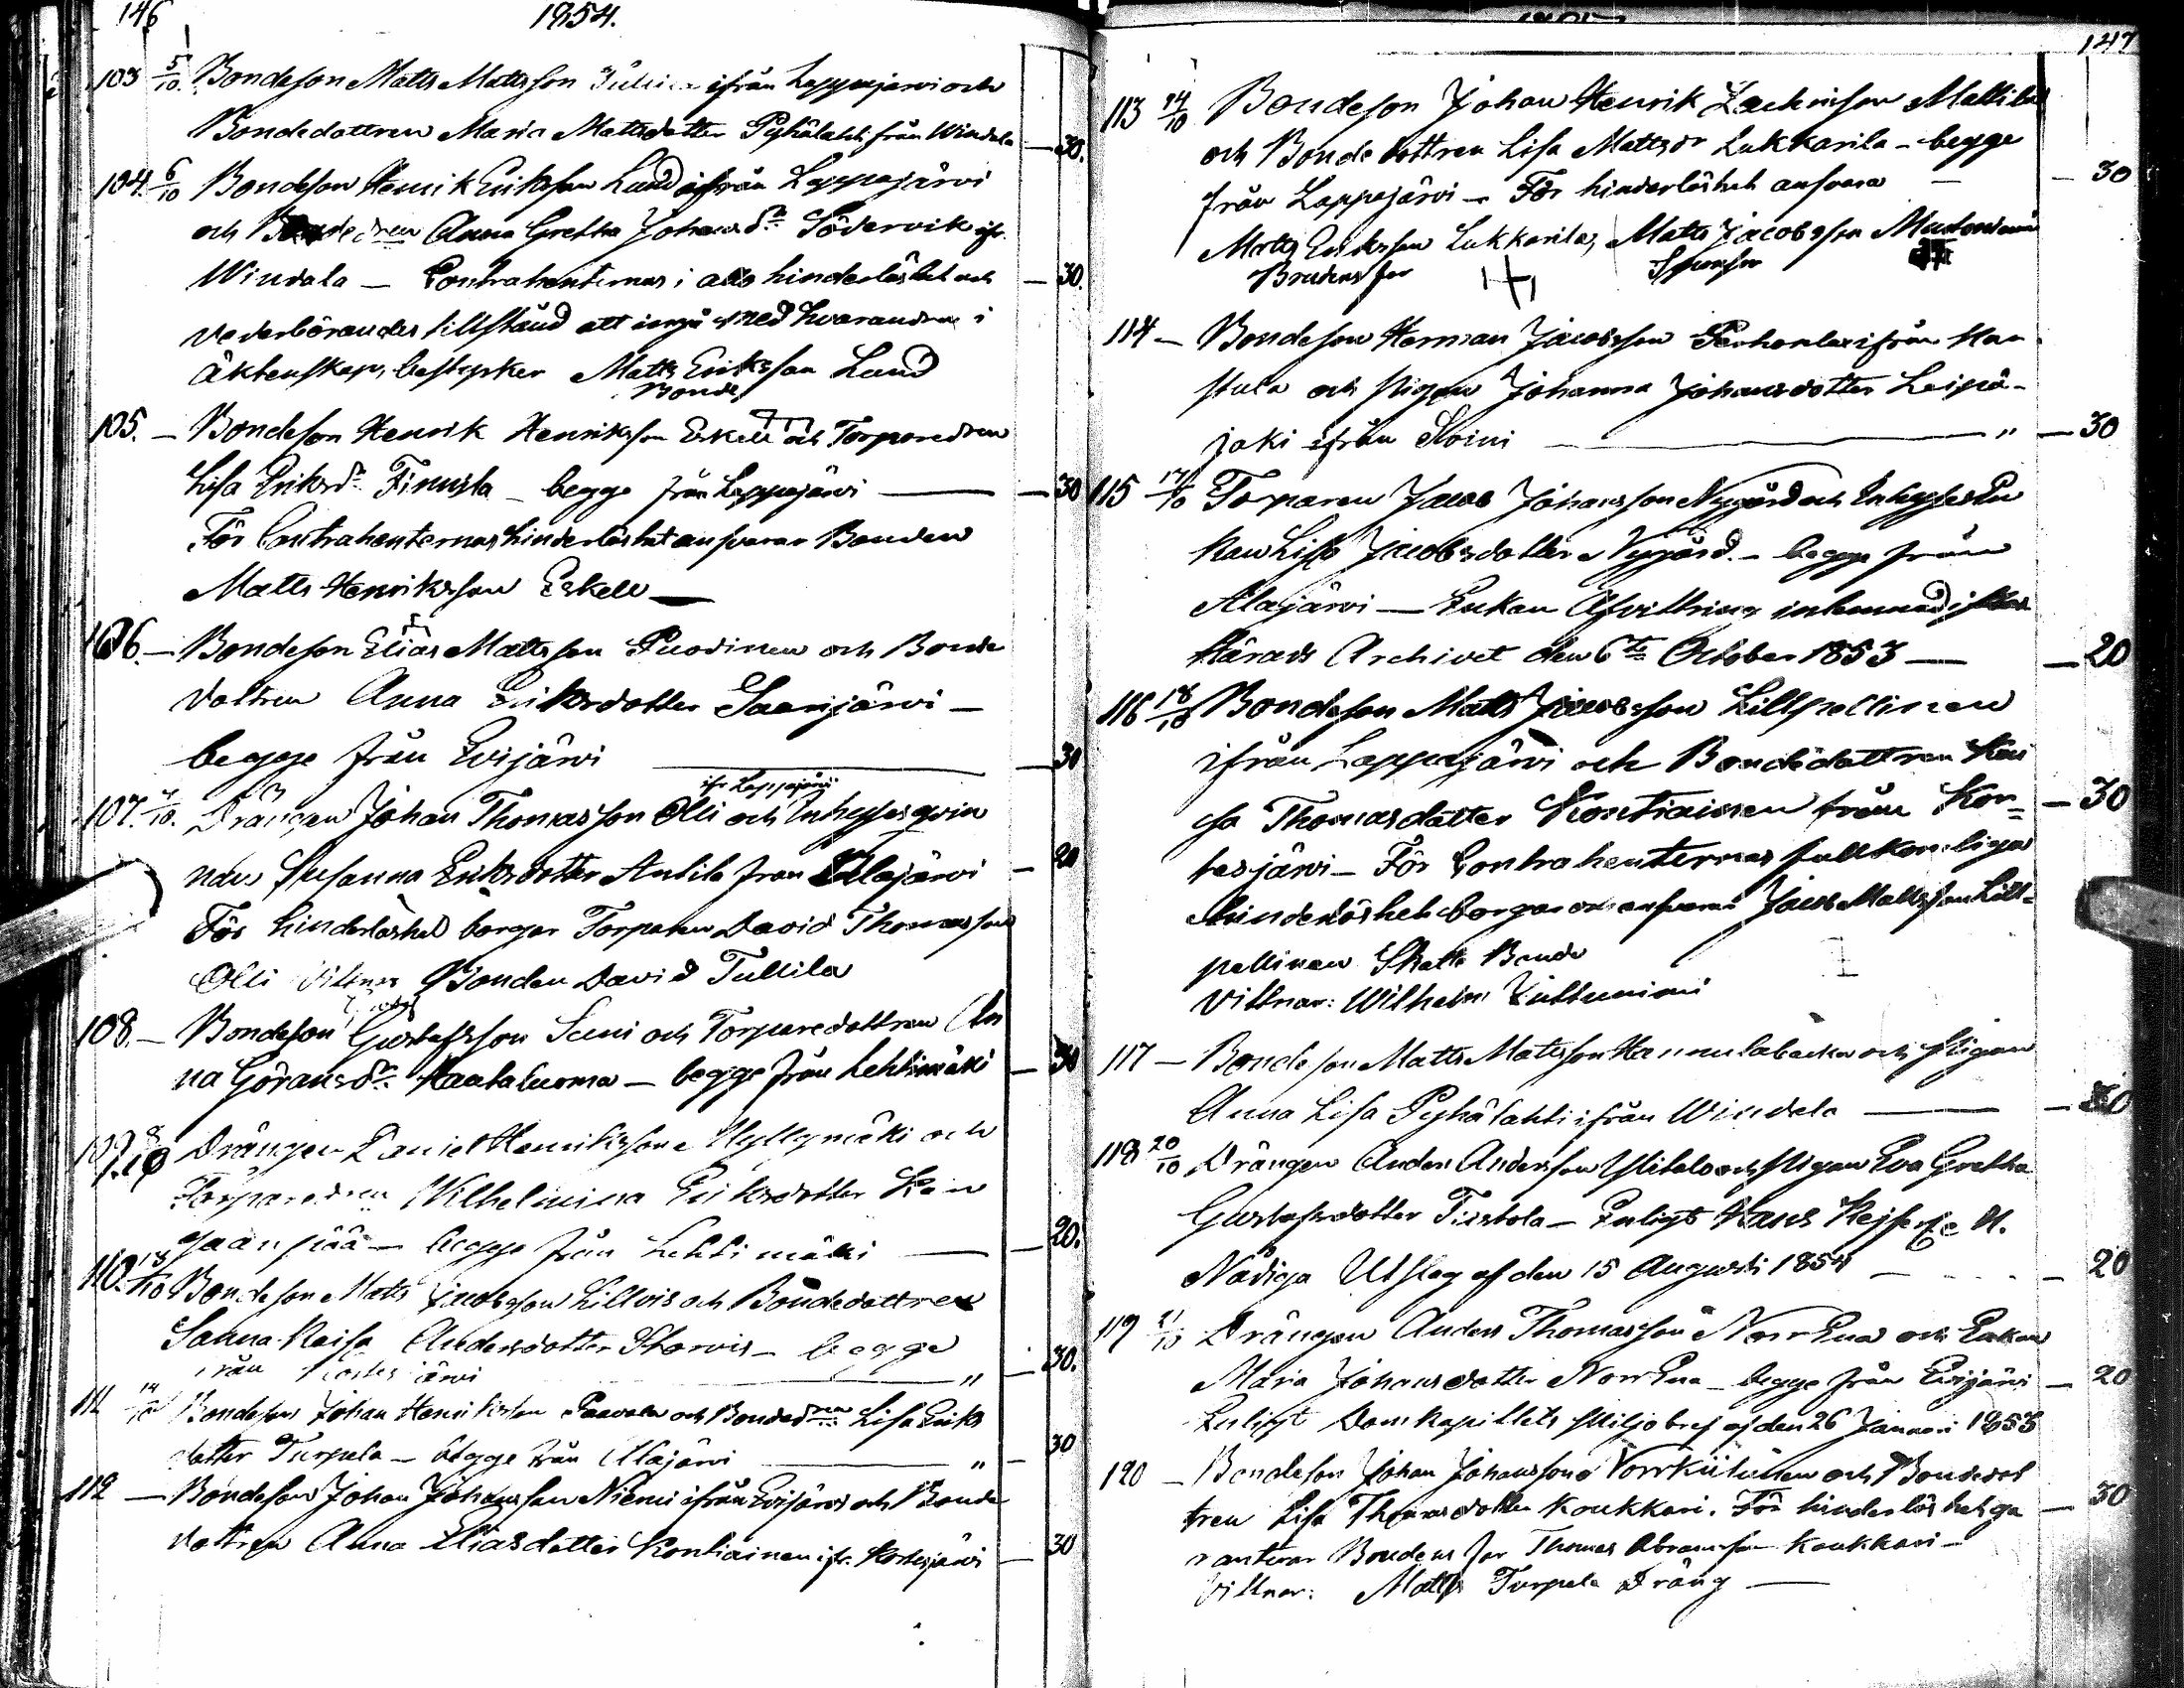 146
1854.
103 5/10. Bondeson Matts Mattsson ifrån Lappajärvi och
Bondedottren Maria Mattsdotter Pyhälahti från Windala — 30.
104. 6/10 Bondeson Henrik Eriksson Lund ifrån Lappajärvi
och Bondedren Anna Gretha Johansdr Södervik ifr.
Windala — Contrahenternas i allo hinderlöshet och — 30.
vederbörandes tillstånd att ingå med hvarandra i
Äktenskap, bestyrker Matts Eriksson Lund
Bonde
105. — Bondeson Henrik Henriksson Eskeli och Torparedren
Lisa Eriksdr Finnila — begge från Lappajärvi — 30
För Contrahenternas hinderlöshet ansvarar Bonden
Matts Henriksson Eskeli —
106. — Bondeson Elias Mattsson Puodinen och Bonde
dottren Anna Eriksdotter Saarijärvi —
begge från Evijärvi — 30
ifr Lappajärvi
107. 7/10. Drängen Johan Thomasson Olli och Inhysesqvin
nan Susanna Eriksdotter Antila från Alajärvi — 20
För hinderlöshet borgar Torparen David Thomasson
Olli Vittnar Bonden David Tullila
108. — Bondeson Gustafsson Sauni och Torparedottren An
na Göransdr Kaataluoma — begge från Lehtimäki — 30
109. 8/10 Drängen Daniel Henriksson Myllymäki och
Torparedren Wilhelmina Eriksdotter Kan
gaanpää — begge från Lehtimäki — 20.
110. 13/10 Bondeson Matts Jacobsson Lillvis och Bondedottren
Sanna Kaisa Andersdotter Storvis — begge
från Kortesjärvi — " — 30.
111 14/10 Bondeson Johan Henriksson Paavola och Bondedren Lisa Eriks
dotter Turpela — begge från Alajärvi — " — 30
112 — Bondeson Johan Johansson Niemi ifrån Evijärvi och Bonde
dottren Anna Eliasdotter Kontiainen ifr. Kortesjärvi — 30
147
113 14/10 Bondeson Johan Henrik Zachrisson Mattila
och Bondedottren Lisa Mattsdr Lukkarila — begge
från Lappajärvi — För hinderlöshet ansvara — 30
Matts Eriksson Lukkarila, Matts Jacobsson
Brudens far Sponsor
114 — Bondeson Herman Jacobsson ifrån Kar
stula och pigan Johanna Johansdotter Leipä-
joki ifrån Soini — " — 30
115 17/10 Torparen Jacob Johansson Nygård och Inhyses En
kan Lisa Jacobsdotter Nygård. — begge från
Alajärvi — Enkan Afvittring inlemnad i
Härads Archivet den 6te October 1853 — — 20
116 18/10 Bondeson Matts Jacobsson Lillpellinen
ifrån Lappajärvi och Bondedottren Kai
sa Thomasdotter Kontiainen från Kor= — 30
tesjärvi — För Contrahenternas fullkomliga
hinderlöshet borgar och ansvarar Jacob Mattsson Lill=
pellinen Skatte Bonde
Vittnar: Wilhelm
117 — Bondeson Matts Mattsson Hannulabacka och pigan
Anna Lisa Pyhälahti ifrån Windala — — 30
118 20/10 Drängen Anders Andersson Ylitalo och pigan Eva Gretha
Gustafsdotter Tiistola — Enligt Hans Kejserl. M.
Nådiga Utslag af den 15 Augusti 1854 — 20
119 21/10 Drängen Anders Thomasson Norr Ena och Enkan
Maria Johansdotter Norr Ena — begge från Evijärvi — 20
Enligt Domkapitlets skiljobref af den 26 Januari 1853
120 — Bondeson Johan Johansson och Bondedot
tren Lisa Thomasdotter Koukkari. För hinderlöshet ga — 30
ranterar Brudens far Thomas Abramsson Koukkari —
Vittnar: Matts Turpela Dräng —